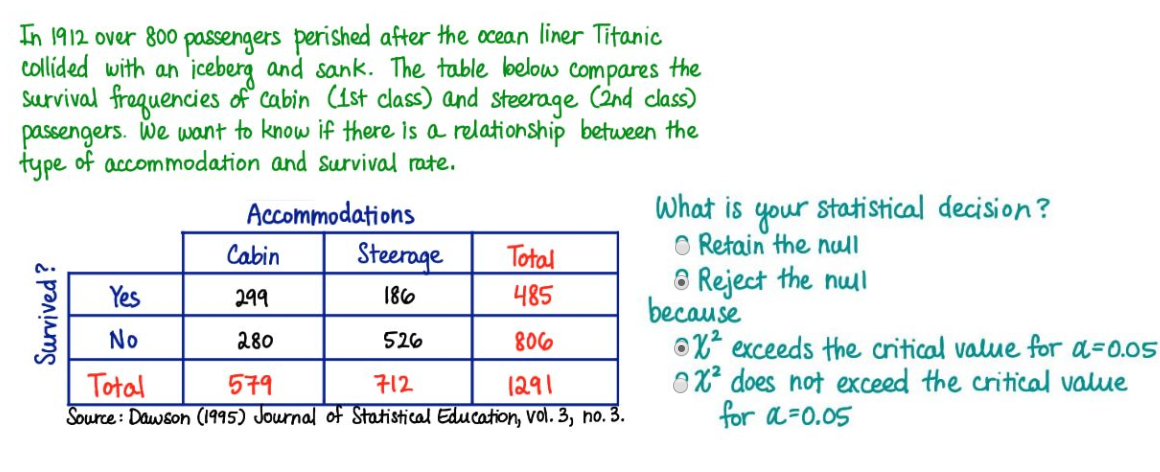 In 1912 over 800 passengers perished after the ocean liner Titanic
collided with an iceberg and sank. The table below compares the
survival frequencies of cabin (1st class) and steerage (2nd class)
passengers. We want to know if there is a relationship between the
type of accommodation and survival rate.
Accommodations
Cabin Steerage Total
Survived?
Yes 299 186 485
No 280 526 806
Total 579 712 1291
Source: Dawson (1995) Journal of Statistical Education, vol. 3, no. 3.
What is your statistical decision?
Retain the null
Reject the null
because
χ² exceeds the critical value for α=0.05
χ² does not exceed the critical value
for α=0.05